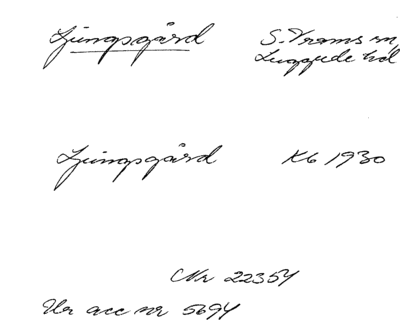 Ljungsgård S. Vrams sn,
Luggude hd
Ljungsgård Kb 1930
Nr 22354
Ur acc nr 5694